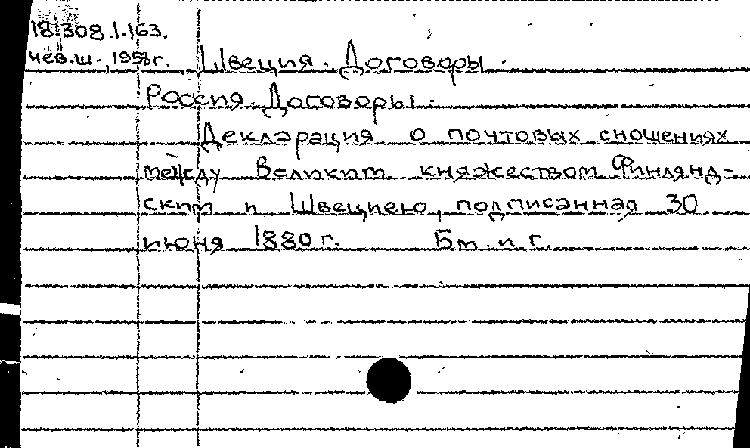 18.308.1.163.
чев.ш., 1958г. Швеция. Договоры.
Россия. Договоры.
Декларация о почтовых сношениях
между Великим княжеством Финлянд-
ским и Швециею, подписанная 30
июня 1880 г. Бм и г.